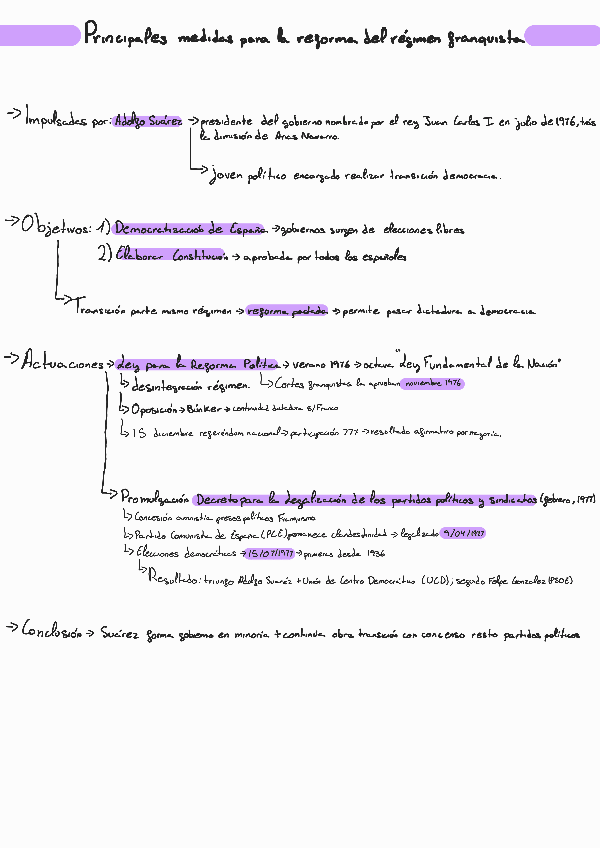 Principales medidas para la reforma del régimen franquista
→ Impulsadas por: Adolfo Suárez → presidente del gobierno nombrado por el rey Juan Carlos I en julio de 1976, tras
la dimisión de Arias Navarro.
→ joven político encargado realizar transición democracia.
→ Objetivos: 1) Democratización de España → gobiernos surgen de elecciones libres
2) Elaborar Constitución → aprobada por todos los españoles
→ Transición parte mismo régimen → reforma pactada → permite pasar dictadura a democracia
→ Actuaciones → Ley para la Reforma Política → verano 1976 → octava "Ley Fundamental de la Nación"
↳ desintegración régimen. ↳ Cortes franquistas la aprueban noviembre 1976
↳ Oposición → Búnker → continuidad dictadura s/Franco
↳ 15 diciembre referéndum nacional → participación 77% → resultado afirmativo por mayoría.
→ Promulgación Decreto para la legalización de los partidos políticos y sindicatos (febrero, 1977)
↳ Concesión amnistía presos políticos Franquismo
↳ Partido Comunista de España (PCE) permanece clandestinidad → legalizado 9/04/1977
↳ Elecciones democráticas → 15/07/1977 → primeras desde 1936
↳ Resultado: triunfo Adolfo Suaréz + Unión de Centro Democrático (UCD), segundo Felipe Gonzalez (PSOE)
→ Conclusión → Suárez forma gobierno en minoría + continúa obra transición con concenso resto partidos políticos